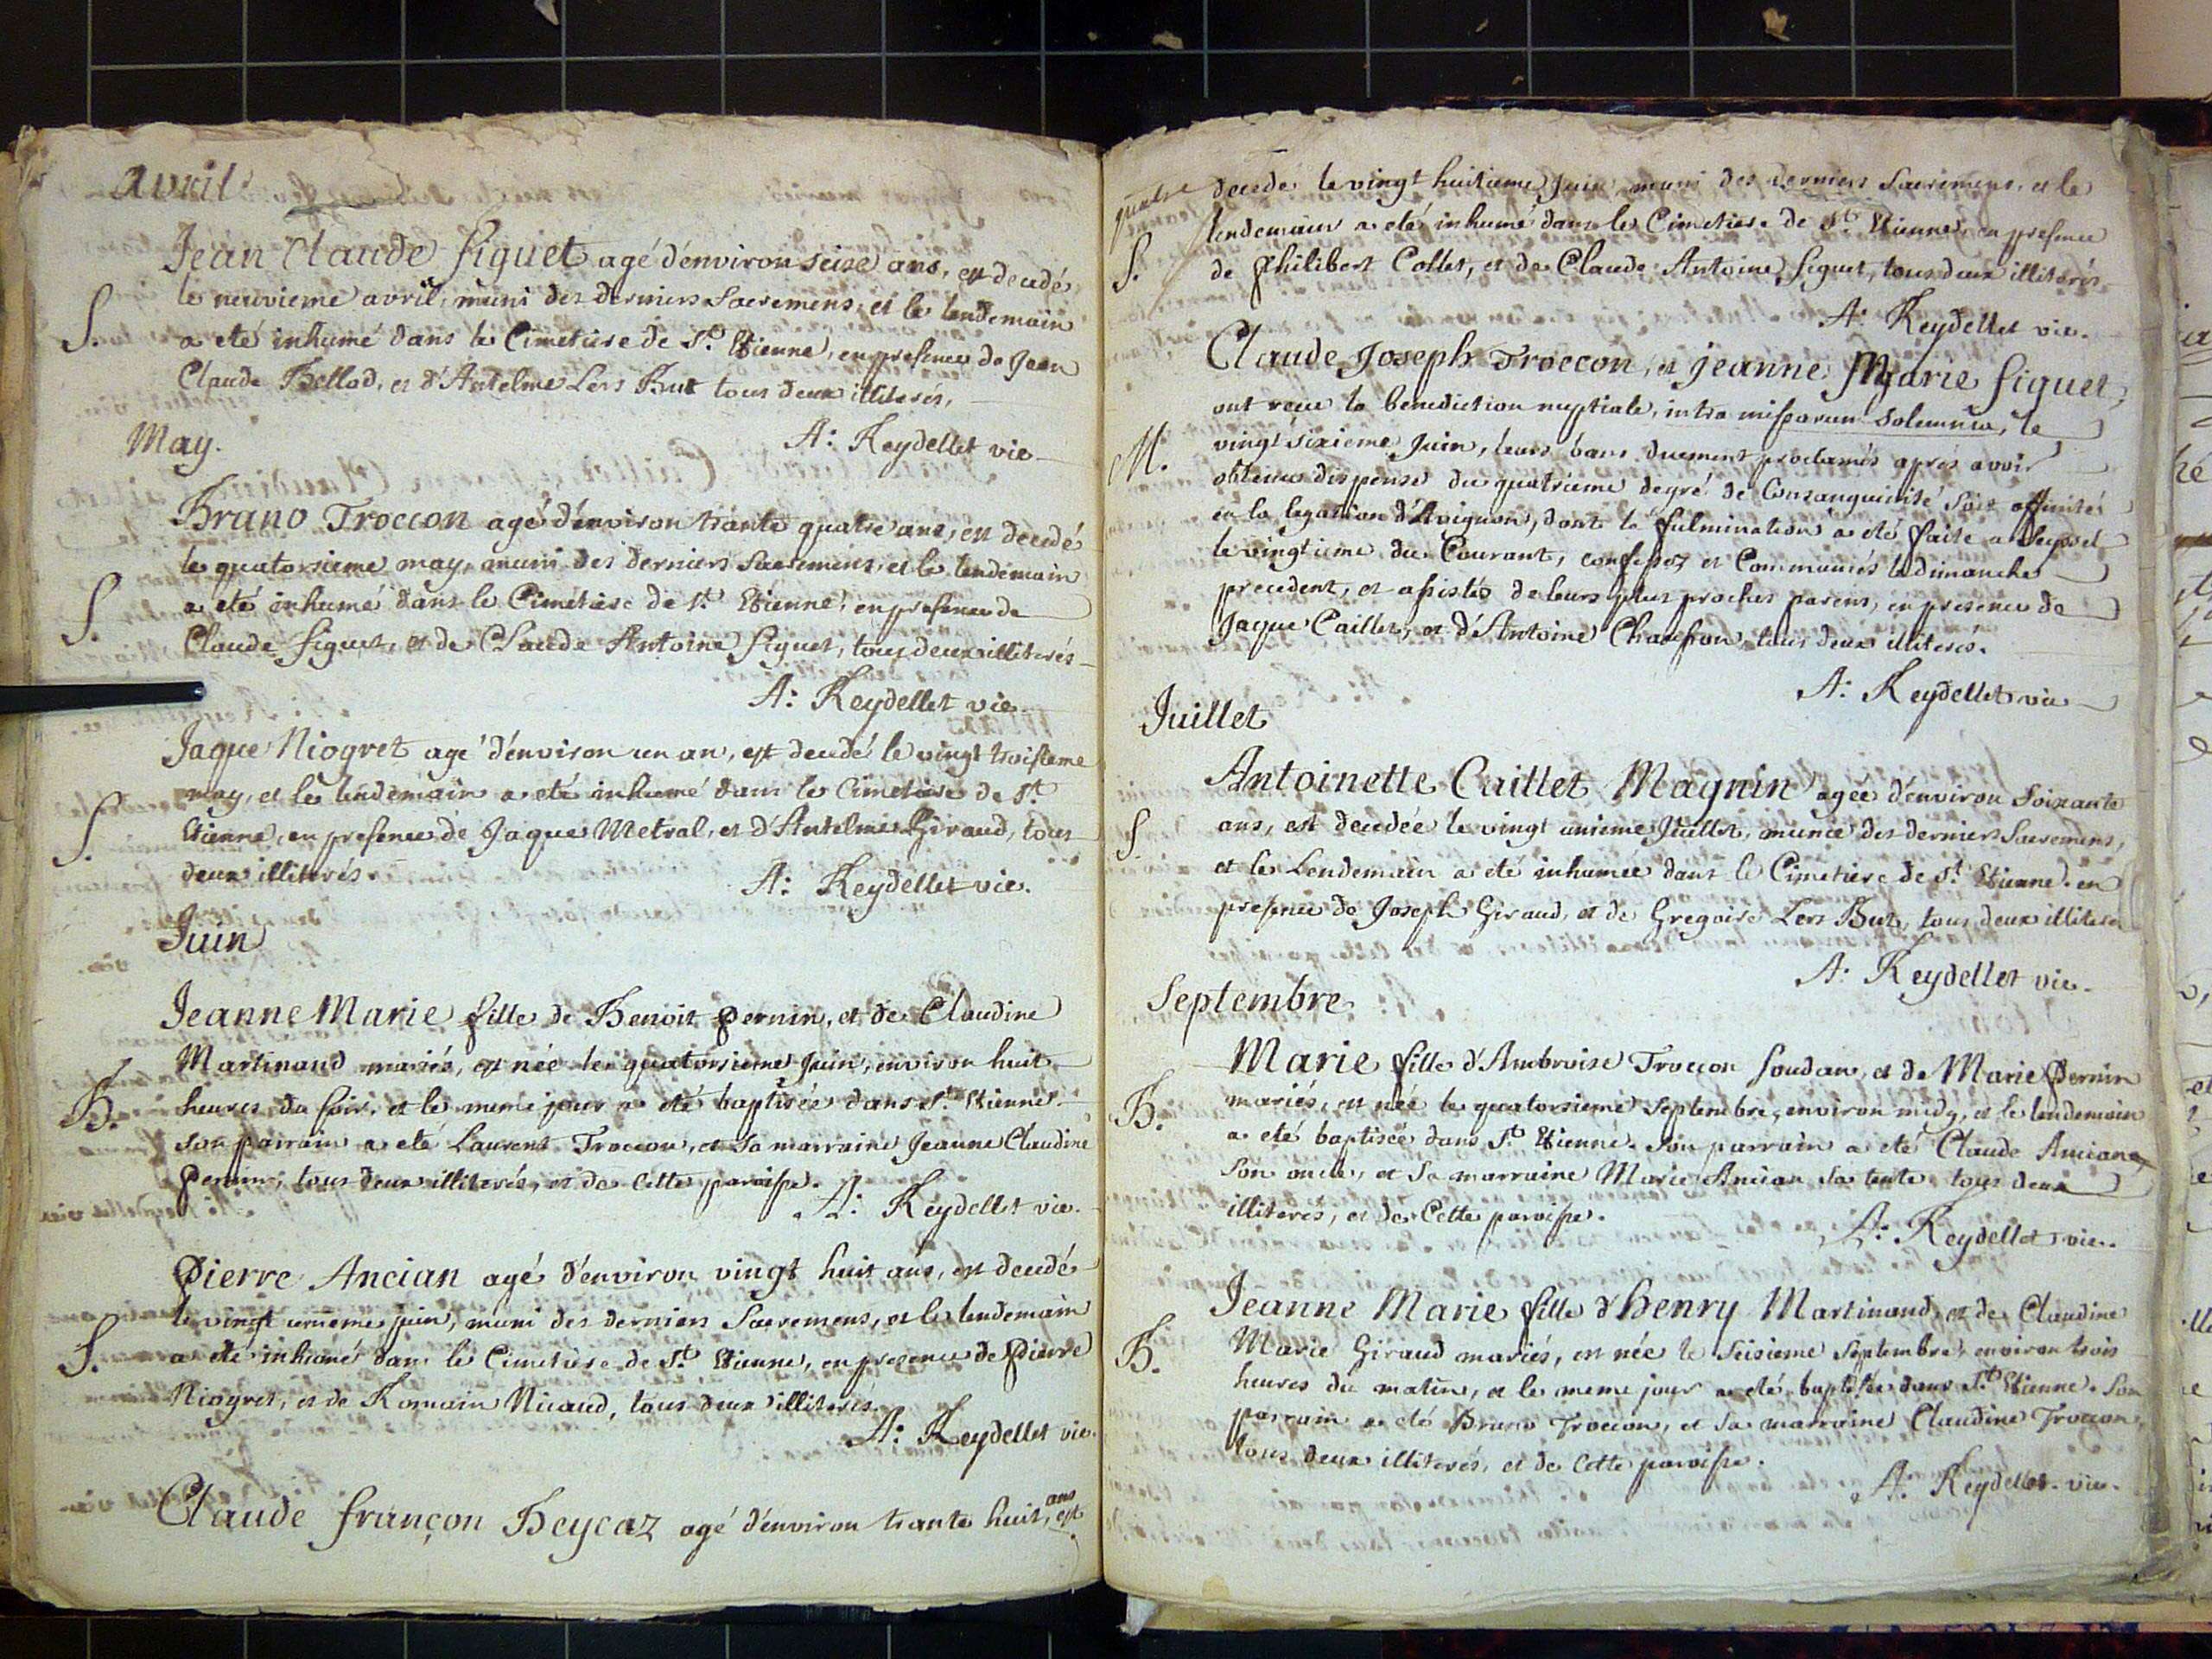 avril
Jean Claude figuet agé d'environ seise ans, est decedé
le neuvieme avril, muni des derniers Sacremens, et le lendemain
S. a eté inhumé dans le Cimetiere de St. Etienne, en presence de Jean
Claude Bellod, et d'Antelme Lers But tous deux illiterés,
A: Reydellet vic.
May.
Bruno Troccon agé d'environ trante quatre ans, est decedé
le quatorsieme may, muni des derniers Sacremens, et le lendemain
S. a eté inhumé dans le Cimetiere de St. Etienne, en presence de
Claude figuet, et de Claude Antoine figuet, tous deux illiterés
A: Reydellet vic.
Jaque Niogret agé d'environ un an, est decedé le vingt troisieme
may, et le lendemain a eté inhumé dans le Cimetiere de St.
S. Etienne, en presence de Jaque Metral, et d'Antelme Giraud, tous
deux illiterés.
A: Reydellet vic.
Juin
Jeanne Marie fille de Benoit Pernin, et de Claudine
Martinand mariés, est née le quatorsieme Juin, environ huit
B. heures du soir, et le meme jour a eté baptisée dans St. Etienne.
son parrain a eté Laurent Troccon, et sa marraine Jeanne Claudine
Pernin, tous deux illiterés, et de cette paroisse.
A: Reydellet vic.
Pierre Ancian agé d'environ vingt huit ans, est decedé
le vingt unieme juin, muni des derniers Sacremens, et le lendemain
S. a eté inhumé dans le Cimetiere de St. Etienne, en presence de Pierre
Niogret, et de Romain Nicaud, tous deux illiterés.
A: Reydellet vic.
Claude françon Beycaz agé d'environ trante huit, ans est
quatre decedé le vingt huitieme Juin muni des derniers Sacremens, et le
lendemain a eté inhumé dans le Cimetiere de St. Etienne, en presence
S. de Philibert Collet, et de Claude Antoine figuet, tous deux illiterés
A: Reydellet vic.
Claude Joseph Troccon, et Jeanne Marie figuet,
ont reçu la benediction nuptiale, intra missarum solemnia, le
M. vingt sixieme Juin, leurs bans duement proclamés apres avoir
obtenu dispense du quatrieme degré de Consanguinité soit affinité
en la legation d'Avignon, dont la fulmination a eté faite a Seyssel
le vingtieme du Courant, confessez et Communiés le dimanche
precedent, et assistés de leurs plus proches parens, en presence de
Jaque Caillet, et d'Antoine Chanfron, tous deux illiterés.
A: Reydellet vic
Juillet
Antoinette Caillet Magnin agée d'environ Soixante
S. ans, est decedée le vingt unieme Juillet, munie des derniers Sacremens,
et le Lendemain a eté inhumée dans le Cimetiere de St. Etienne. en
presence de Joseph Giraud, et de Gregoire Lers But, tous deux illiterés
A: Reydellet vic.
Septembre
Marie fille d'Ambroise Troccon soudan, et de Marie Pernin
B. mariés, est née le quatorsieme Septembre, environ midy, et le lendemain
a eté baptisée dans St. Etienne. son parrain a eté Claude Ancian
son oncle, et sa marraine Marie Ancian sa tante tous deux
illiterés, et de Cette paroisse.
A: Reydellet vic.
Jeanne Marie fille d'henry Martinand, et de Claudine
B. Marie Giraud mariés, est née le seisieme Septembre, environ trois
heures du matin, et le meme jour a eté baptisée dans St. Etienne. son
parrain a eté Bruno Troccon, et sa marraine Claudine Troccon,
tous deux illiterés, et de Cette paroisse.
A: Reydellet. vic.